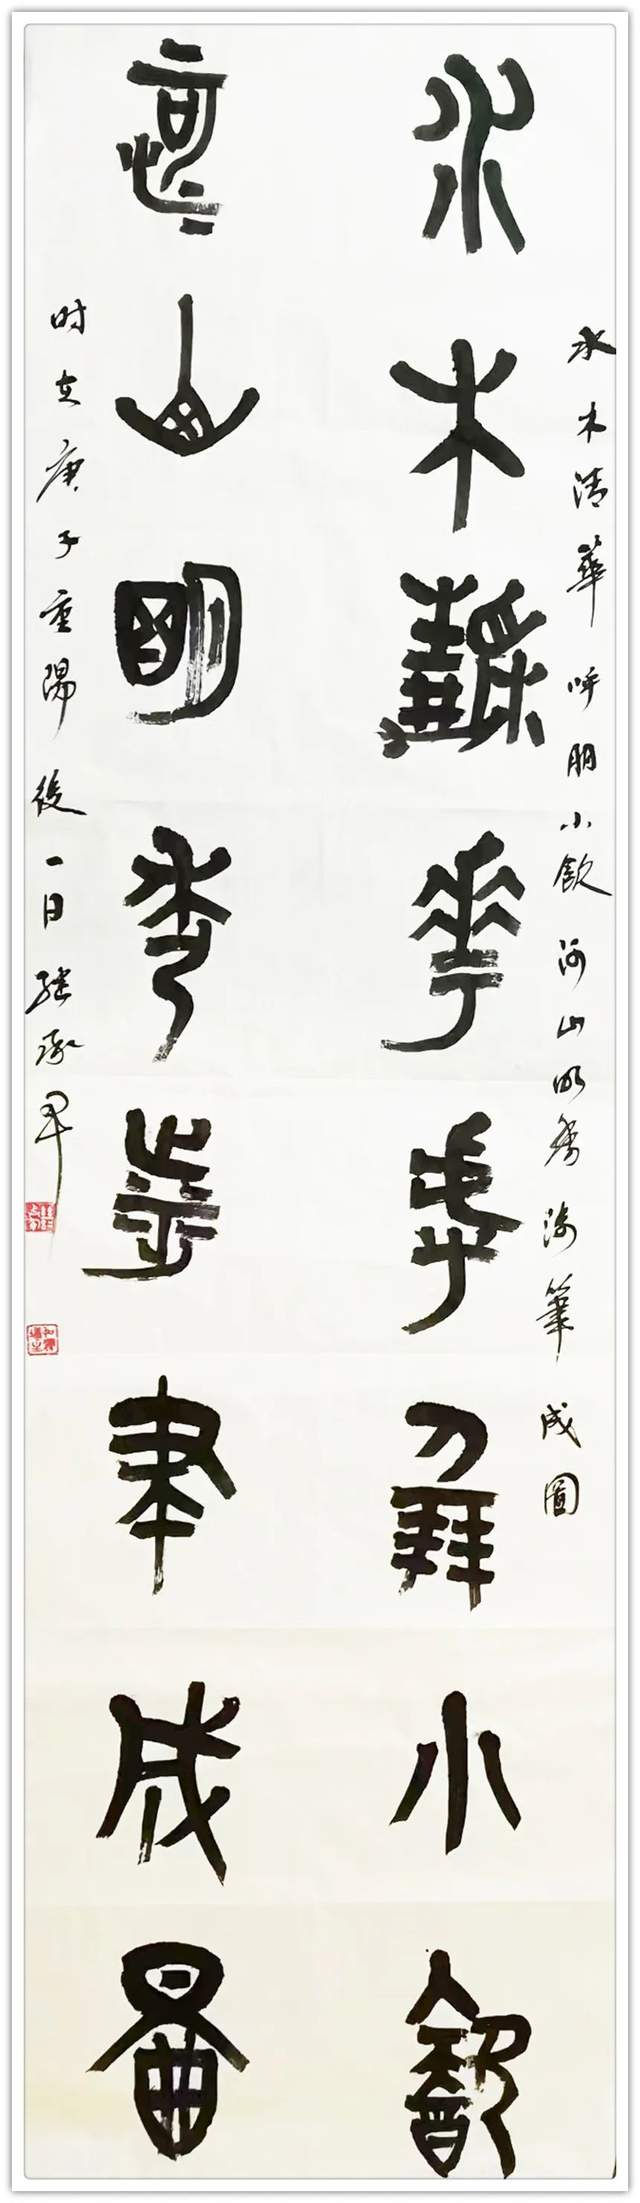 水木清華呼朋小飲河山明秀涉筆成圖
水木清華呼朋小飲
河山明秀涉筆成圖
时在庚子重陽後一日继承